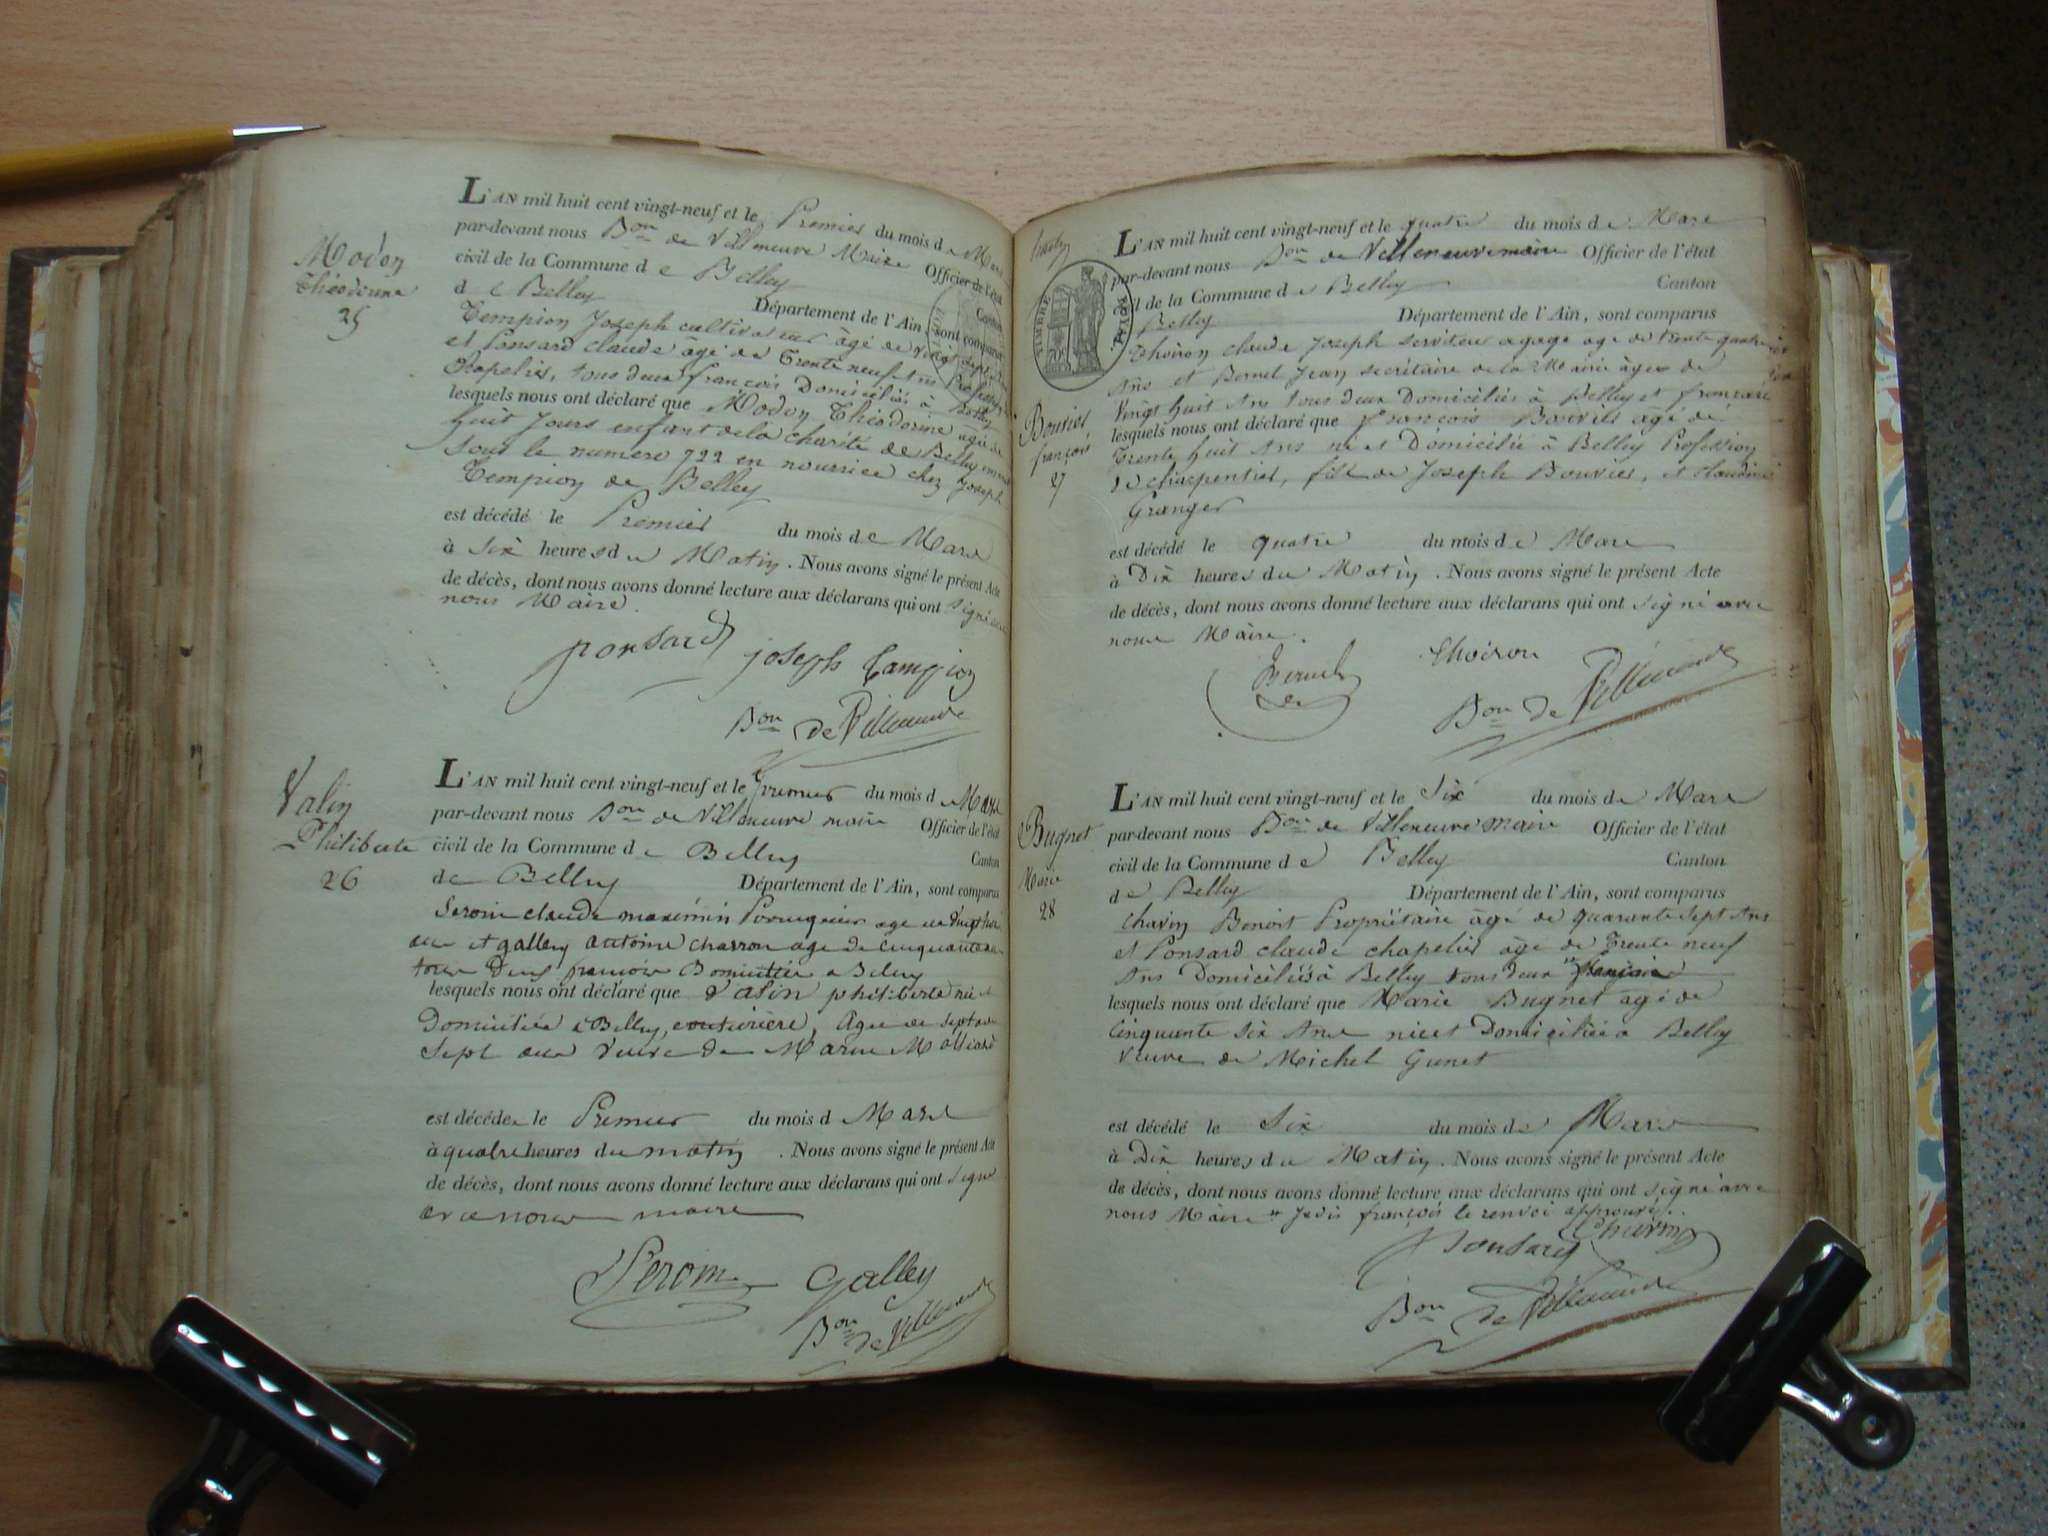 Modon
Théodorine
25
L'AN mil huit cent vingt-neuf et le Premier du mois de Mars
par-devant nous Bon de Villeneuve Maire Officier de l'état
civil de la Commune de Belley Canton
de Belley Département de l'Ain, sont comparus
Tempion Joseph cultivateur âgé de vingt sept ans
et Ponsard claude âgé de Trente neuf ans Profession
Chapelier, tous deux françois Domiciliés à Belley
lesquels nous ont déclaré que Modon Théodorine âgée de
huit Jours enfant de la charité de Belley
Sous le numero 722 en nourrice chez Joseph
Tempion de Belley
est décédé le Premier du mois de Mars
à Six heures du Matin. Nous avons signé le présent Acte
de décès, dont nous avons donné lecture aux déclarans qui ont signé avec
nous Maire.
ponsard joseph tampion
Bon de Villeneuve
Valin
Philiberte
26
L'AN mil huit cent vingt-neuf et le premier du mois de Mars
par-devant nous Bon de Villeneuve maire Officier de l'état
civil de la Commune de Belley Canton
de Belley Département de l'Ain, sont comparus
Serom claude maximin age de vingt
ans et galley antoine charron age de cinquante
tous Deux francois Domicilies a Belley
lesquels nous ont déclaré que Valin philiberte née et
Domiciliée à Belley, couturière, Agee de septante
Sept ans Veuve de Marin
est décédée le Premier du mois d Mars
à quatre heures du matin. Nous avons signé le présent Acte
de décès, dont nous avons donné lecture aux déclarans qui ont signé
avec nous maire
Serom galley
Bon de Villeneuve
TIMBRE ROYAL
Bouvier
françois
27
L'AN mil huit cent vingt-neuf et le quatre du mois de Mars
par-devant nous Bon de Villeneuve maire Officier de l'état
civil de la Commune de Belley Canton
Belley Département de l'Ain, sont comparus
Thoiron claude Joseph serviteur a gage age de trente quatre
Ans et Bernel Jean secrétaire de la Mairie âgé de
Vingt huit Ans tous deux Domiciliés à Belley et
lesquels nous ont déclaré que François Bouvier âgé de
Trente huit Ans né et Domicilié à Belley Profession
de charpentier, fils de Joseph Bouvier, et Claudine
Granger
est décédé le quatre du mois de Mars
à Dix heures du Matin. Nous avons signé le présent Acte
de décès, dont nous avons donné lecture aux déclarans qui ont signé avec
nous Maire.
Bernel Thoiron
Bon de Villeneuve
Bugnet
Marie
28
L'AN mil huit cent vingt-neuf et le Six du mois de Mars
par-devant nous Bon de Villeneuve maire Officier de l'état
civil de la Commune de Belley Canton
de Belley Département de l'Ain, sont comparus
Chavin Benoit Propriétaire âgé de quarante sept Ans
et Ponsard claude chapelier âgé de Trente neuf
Ans Domiciliés à Belley tous deux françois
lesquels nous ont déclaré que Marie Bugnet âgé de
Cinquante six Ans née et Domiciliée a Belley
Veuve de Michel Gunet
est décédé le Six du mois de Mars
à Dix heures du Matin. Nous avons signé le présent Acte
de décès, dont nous avons donné lecture aux déclarans qui ont signé avec
nous Maire françois le renvoi approuvé.
Ponsard Chavin
Bon de Villeneuve